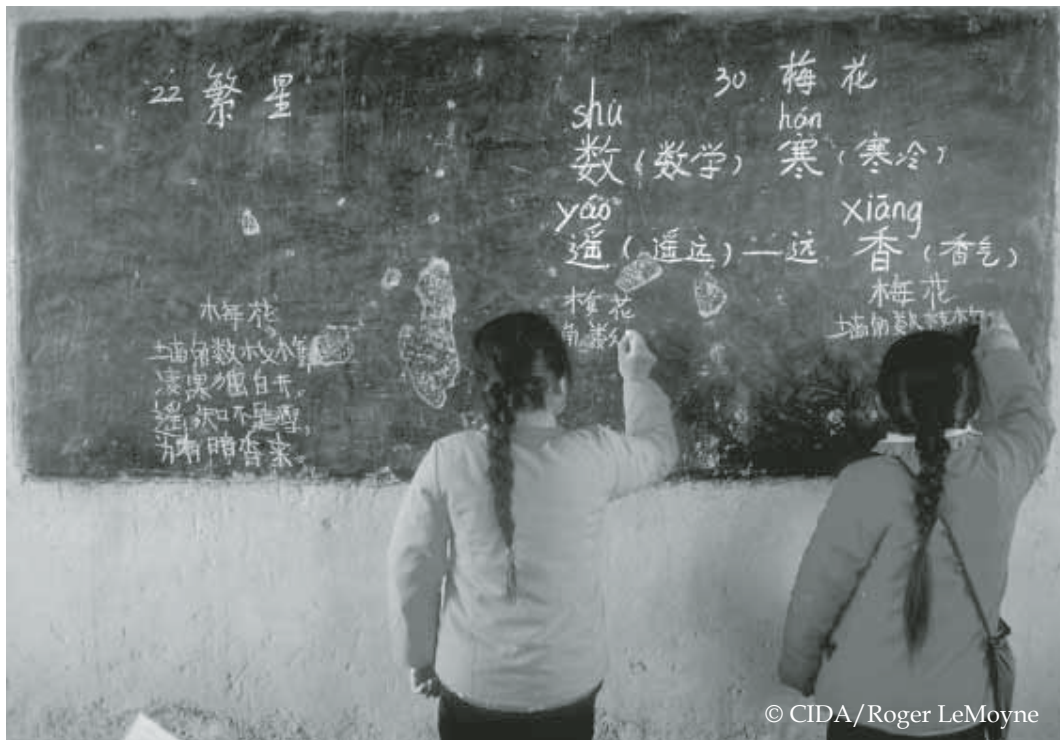 22 繁星
30 梅花
shù hán
数(数学) 寒(寒冷)
yáo xiāng
遥(遥远)—远 香(香气)
梅花
墙角数枝梅
凌寒独自开。
遥知不是雪,
为有暗香来。
梅花
角数
梅花
墙角数枝梅
© CIDA/Roger LeMoyne